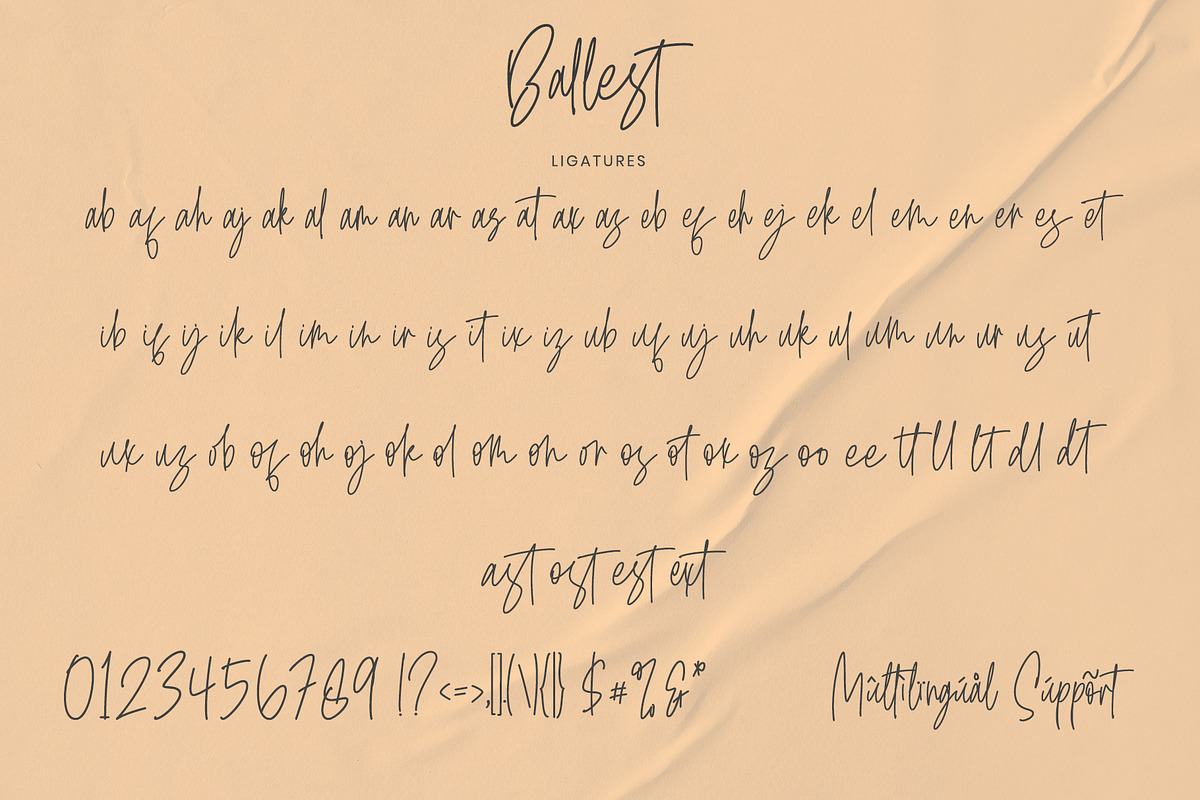 Ballest
LIGATURES
ab af ah aj ak al am an ar as at ax az eb ef eh ej ek el em en er es et
ib if ij ik il im in ir is it ix iz ub uf uj uh uk ul um un ur us ut
ux uz ob of oh oj ok ol om on or os ot ox oz oo ee tt ll lt dl dt
ast ost est ext
0123456789 !? <=>,[].(\){|} $#%&*
Mûltîlïngúål Súppõrt